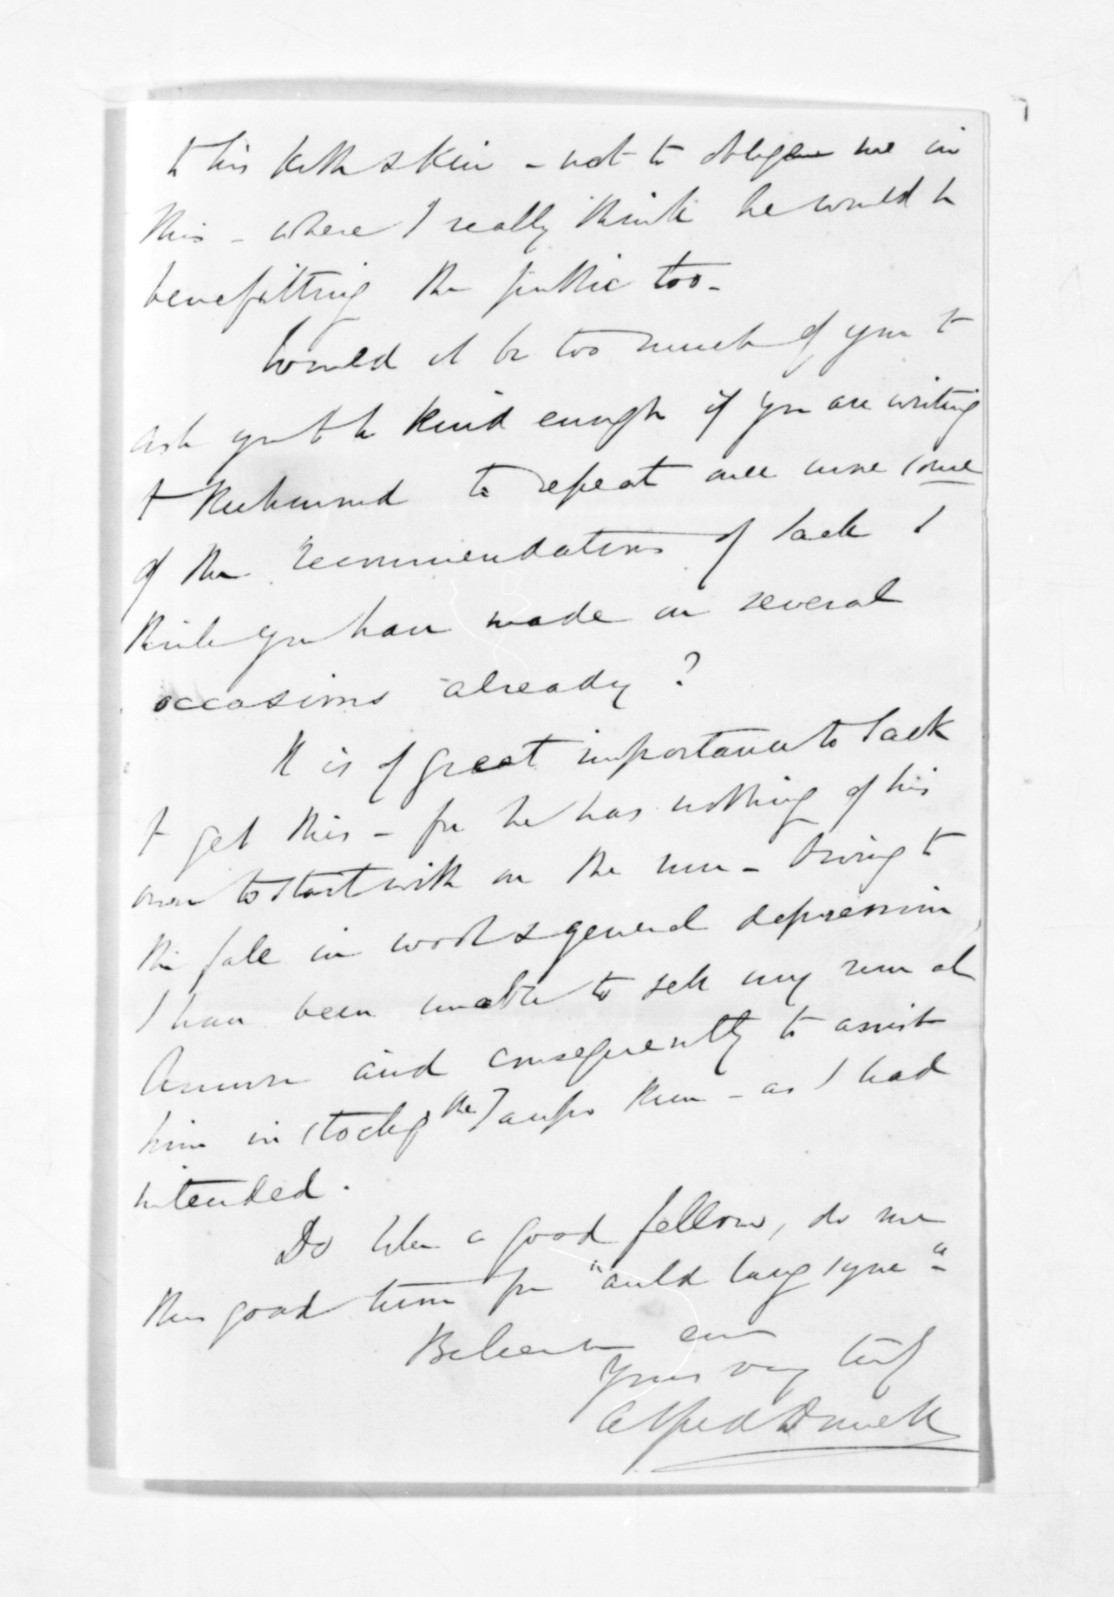 to his kith & kin - not to oblige me in
this - where I really think he would be
benefitting the public too -
Would it be too much of you to
ask you to be kind enough if you are writing
to Richmond to repeat once more some
of the recommendations of Jack I
think you have made on several
occasions already?
It is of great importance to Jack
to get this - for he has nothing of his
own to start with on the run - Owing to
the fall in wool & general depression,
I have been unable to sell my run at
and consequently to assist
him in stocking the Taupo Run - as I had
intended.
Do like a good fellow, do me
this good turn for "auld lang syne" -
Believe me
Yours very truly
Alfred